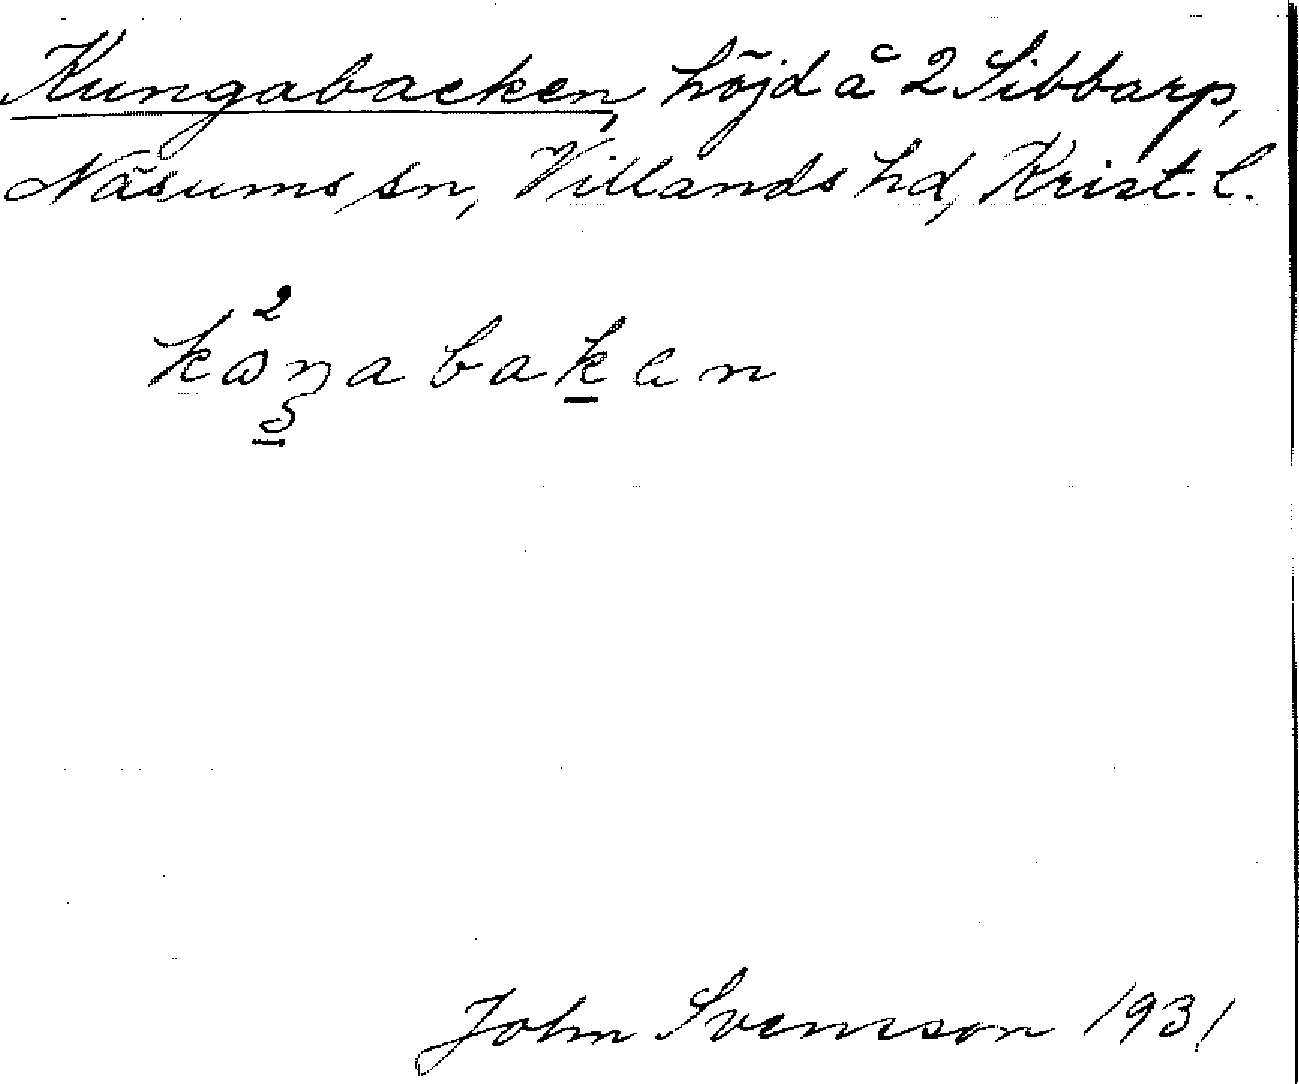 Kungabacken, höjd å 2 Sibbarp,
Näsums sn, Villands hd, Krist. l.
John Svensson 1931